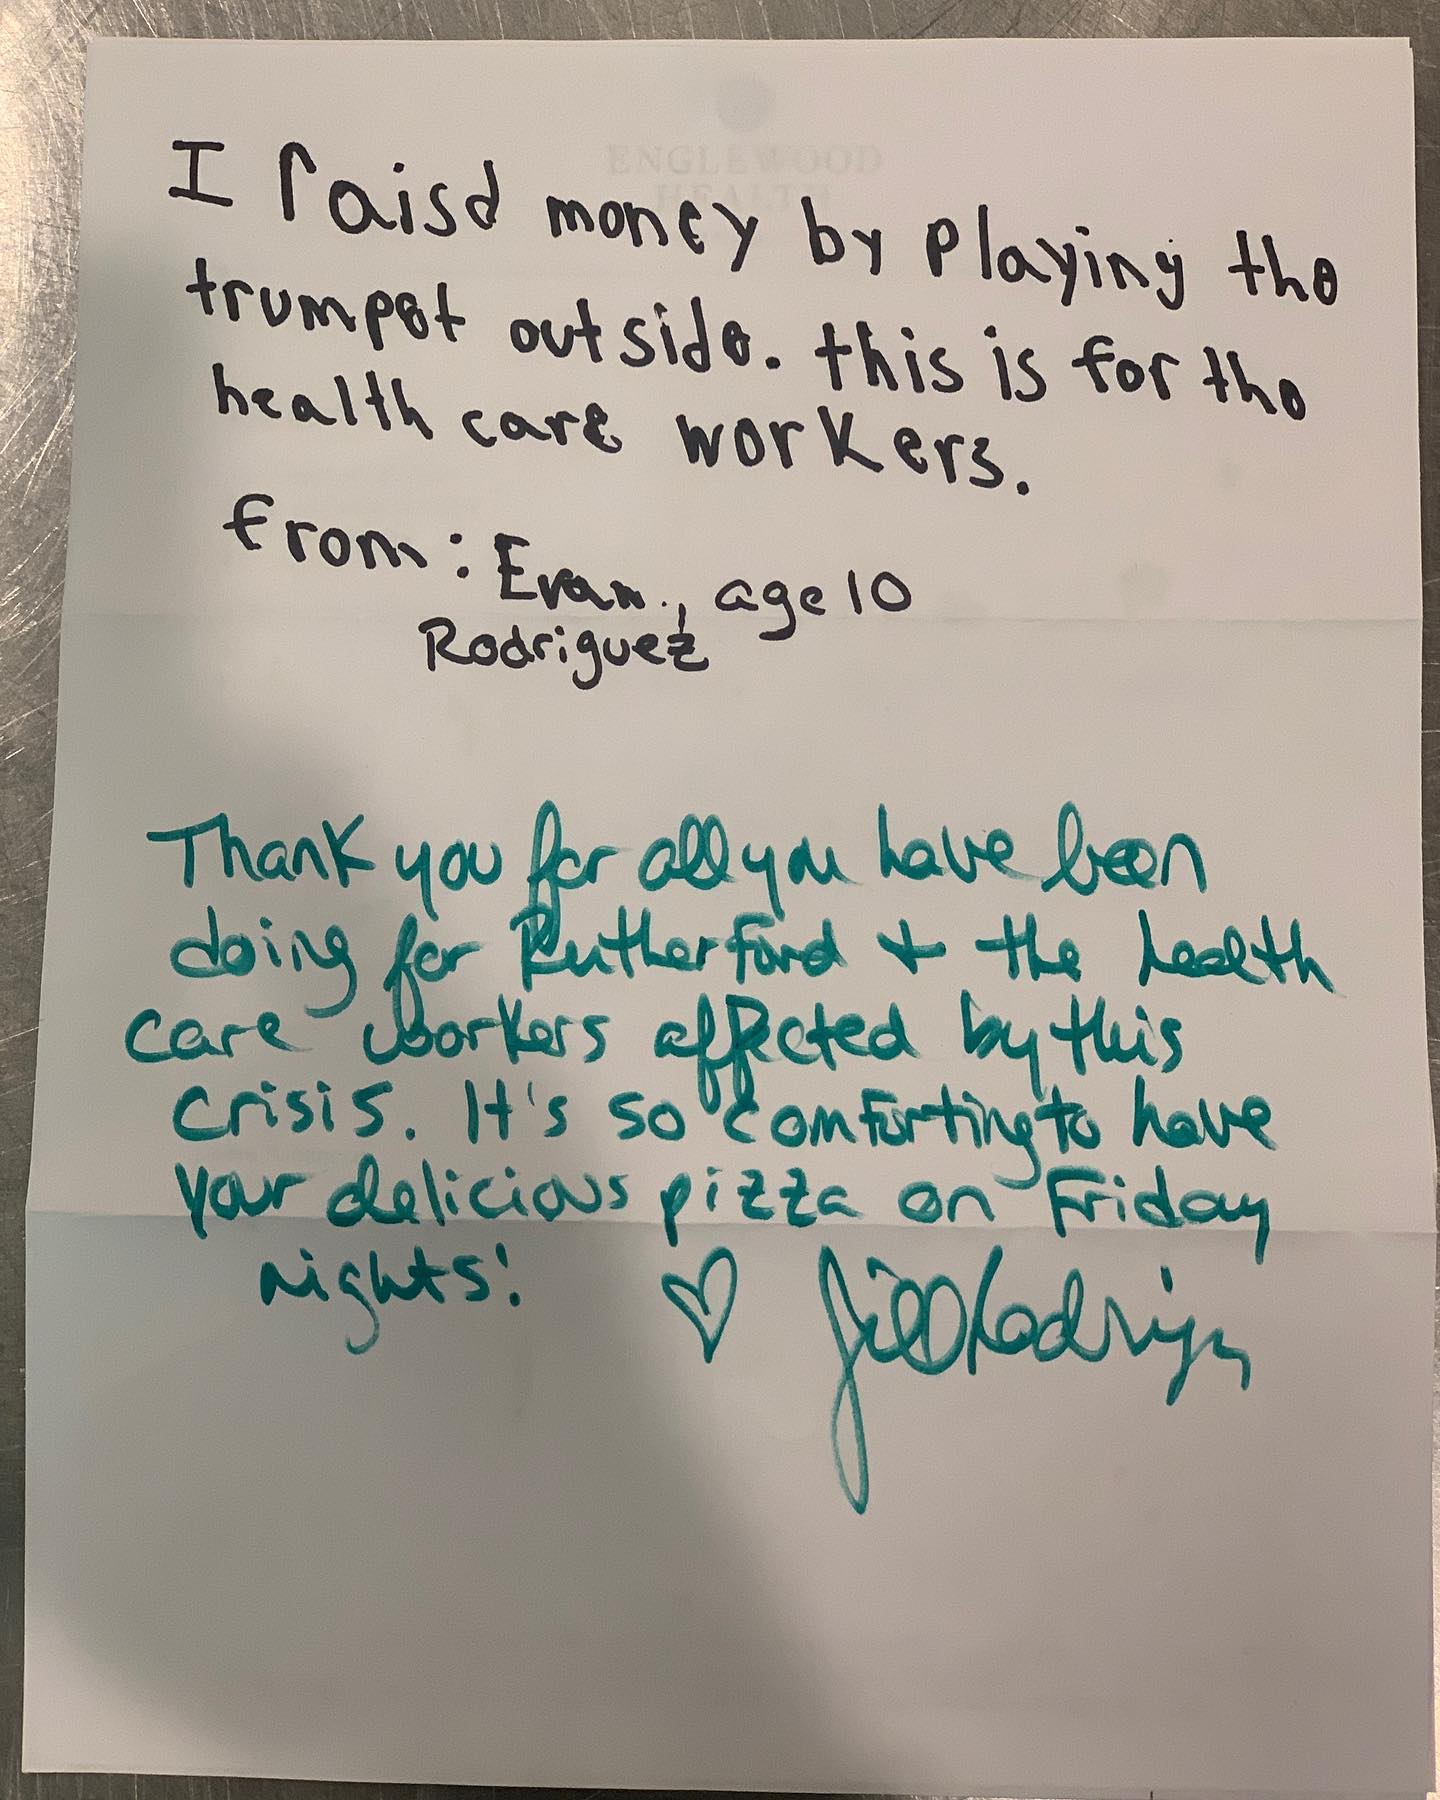 ENGLEWOOD
HEALTH
I raisd money by playing the
trumpet outside. this is for the
health care workers.
from: Evan., age 10
Rodriguez
Thank you for all you have been
doing for Rutherford + the health
care workers affected by this
crisis. It's so comforting to have
your delicious pizza on Friday
nights!
Jill Rodriguez